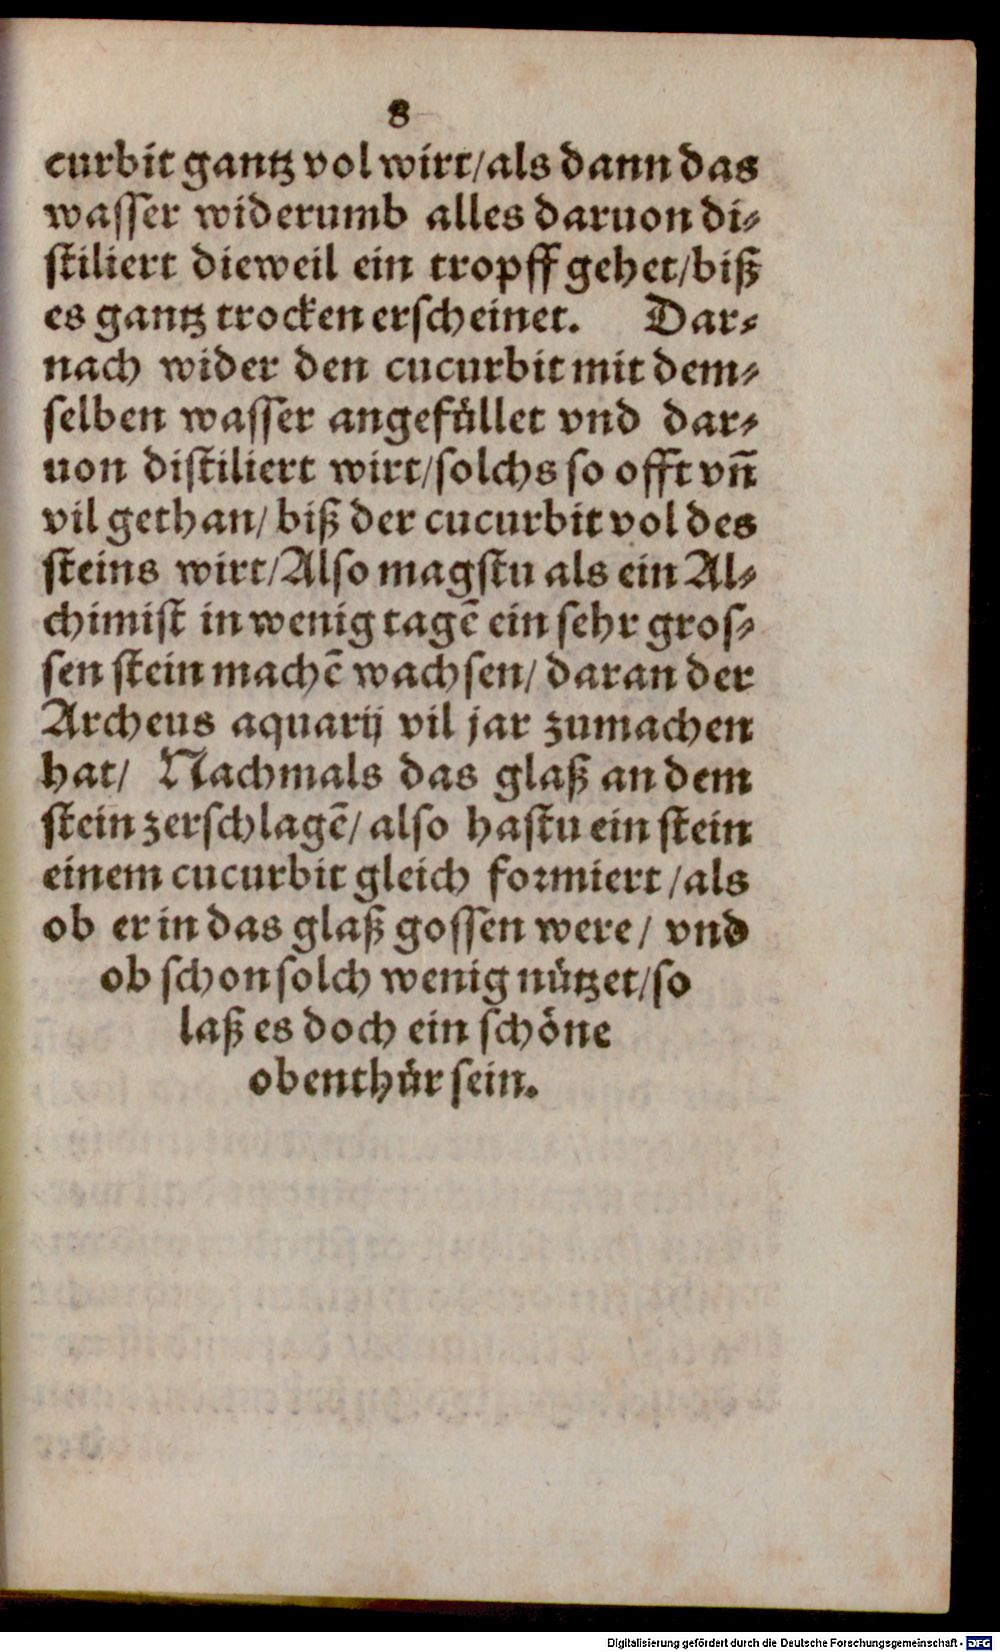 8
curbit gantz vol wirt/als dann das
wasser widerumb alles daruon di⸗
stiliert dieweil ein tropff gehet/biß
es gantz trocken erscheinet. Dar⸗
nach wider den cucurbit mit dem⸗
selben wasser angefüllet vnd dar⸗
uon distiliert wirt/solchs so offt vn̄
vil gethan/ biß der cucurbit vol des
steins wirt/Also magstu als ein Al⸗
chimist in wenig tagē ein sehr gros⸗
sen stein machē wachsen/ daran der
Archeus aquarij vil jar zumachen
hat/ Nachmals das glaß an dem
stein zerschlagē/ also hastu ein stein
einem cucurbit gleich formiert/als
ob er in das glaß gossen were/ vnd
ob schon solch wenig nützet/so
laß es doch ein schöne
obenthür sein.
Digitalisierung gefördert durch die Deutsche Forschungsgemeinschaft - DFG